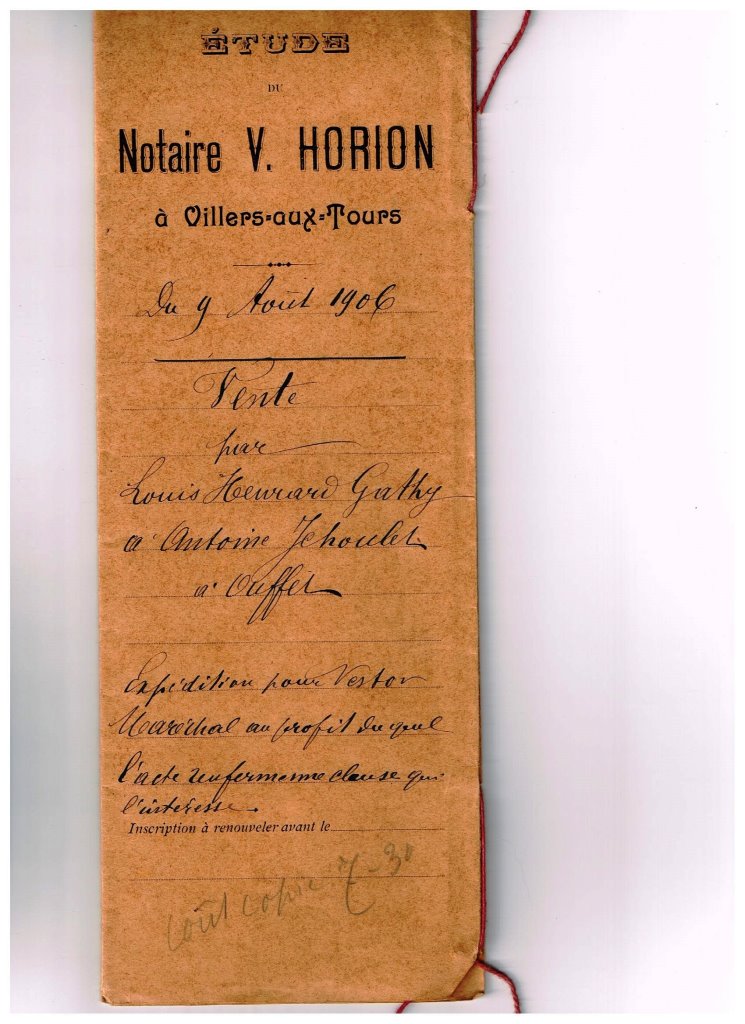 ÉTUDE
DU
Notaire V. HORION
à Villers-aux-Tours
Du 9 Août 1906
Vente
par
Louis Henrard Gathy
à Antoine Jehoulet
à Ouffet
Expédition pour Nestor
Maréchal au profit du quel
l'acte renferme une clause qui
l'intéresse.
Inscription à renouveler avant le
coût copie 7-30